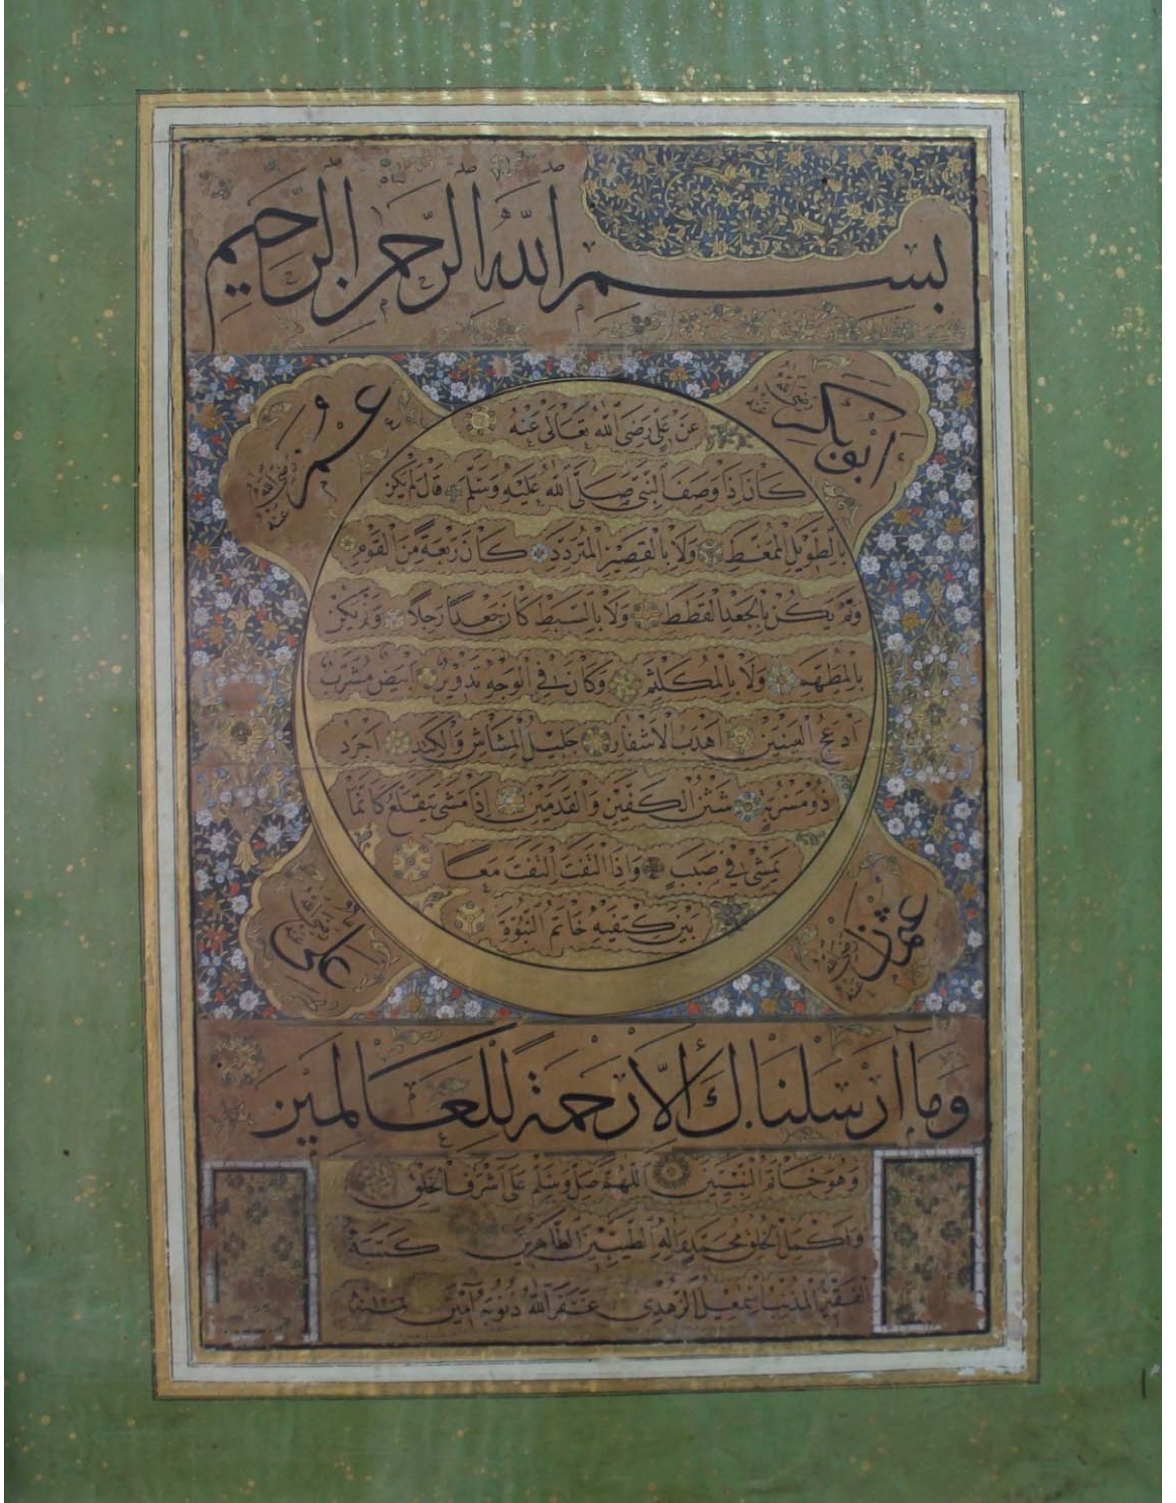 بسم الله الرحمن الرحيم
ابو بكر رضي الله عنه
عمر رضي الله عنه
عن علي رضي الله تعالى عنه
كان اذا وصف النبي صلى الله عليه وسلم قال لم يكن
بالطويل الممغط ولا بالقصير المتردد كان ربعة من القوم
ولم يكن بالجعد القطط ولا بالسبط كان جعدا رجلا ولم يكن
بالمطهم ولا بالمكلثم وكان في الوجه تدوير ابيض مشرب
ادعج العينين اهدب الاشفار جليل المشاش والكتد اجرد
ذو مسربة شثن الكفين والقدمين اذا مشى يتقلع كانما
يمشي في صبب واذا التفت التفت معا
بين كتفيه خاتم النبوة
عثمان رضي الله عنه
علي رضي الله عنه
وما ارسلناك الا رحمة للعالمين
وهو خاتم النبيين اللهم صل وسلم على اشرف الخلق
واكمل الخلق محمد واله الطيبين الطاهرين كتبه
الفقير المذنب اسمعيل الزهدي غفر الله ذنوبه آمين